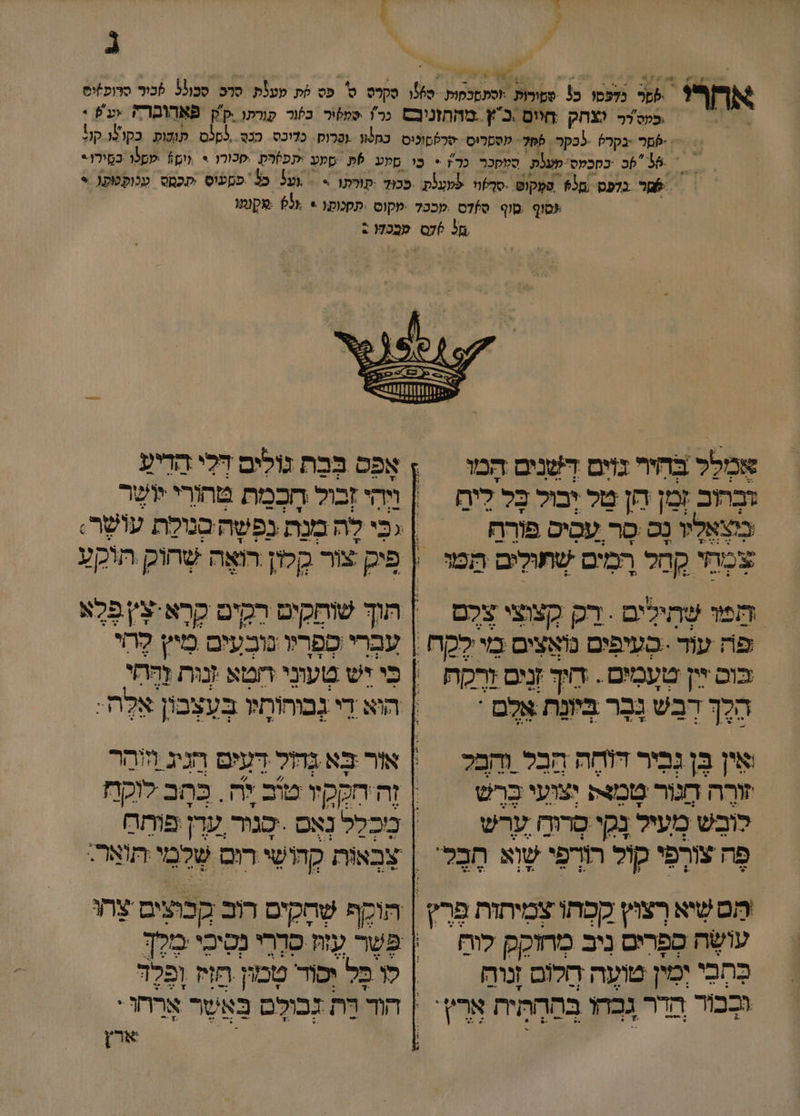 ג
אחרי אשר נדפסו כל השירות והתשבחות האלו הקרה ה' פה את מעלת הרב הכולל אביר הרופאים
כמה"רר יצחק חיים כ"ץ מהחזנים נר"ו המאיר באור תורתו ק"ק פאדובה יע"א •
אשר נקרא לבקר אחד מהשרים הראשונים בחלוו ופרוס כדינה רבה לשלם תודות בקולו קול
אל אב בחכמה מעלת המחבר נר"ו • כי שמע את שמע תפארת חבורו • וישא משלו בשירו •
אשר נדפס מלא המקום הראוי למעלת כבוד תורתו • ועל כל פשעים תכסה ענותנותו •
וסוף סוף האדם מכבד מקום תחנותו • ולא מקומו
של אדם מכבדו :
אמלל בחיר גוים דשנים המו
וברחוב זמן חן טל יבול כל ליח
בצאליו נס סר עסיס פורח
צמחי קהל רמים שתולים תמו
תמו שתילים . רק קצוצי צלם
פה עוד . סעיפים נואצים מי לקח
כוס יין טעמים . היך זנים ורקח
הלך דבש גבר ביונת אלם
אין בן גביר דוחה הבל והבל
זורה חגור טמא יצועי ברש
לובש מעיל נקי סרוח ערש
פה צורפי קול רודפי שוא חבל
תם שיא רצוץ קסתו צמיתות פרץ
עושה ספרים ניב מחוקק לוח
כתבי ימין טועה חלום זנוח
ובכור הדר גבהו בתהתית ארץ
אפס בבת גולים דלי הדיע
ויהי זבול חכמת טהורי יושר
כי לה מנת נפשה סגולת עושר
פיק צור קלון רואה שחוק תוקע
תוך שוחקים רקים קרא ציץ פלא
עברי ספריו נובעים מיץ לחי
כי יש טעוני חמא זנות ודחי
הוא די גבורותיו בעצבון אלה
אור בא גדול דעים חגיג וזוהר
זה חקקיו טוב יה . כתב לוקח
מכלל נאם . סגור עדן פותח
צבאות קדושי רום שלמי תואר
תוקף שחקים רוב קבוצים צחו
פשר עזוז סדרי נסיכי מלך
לו כל יסוד טמון חזיז ופלך
הוד דת גבולם באשר ארחו
ארץ